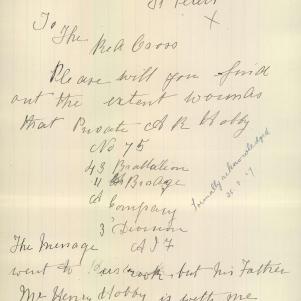 St Peters
X
To
The
Red Cross
Please will you find
out the extent wounds
that Private A R Hobby
No 75
43 Brattalion
11 Bridage
A Company
3 Division
A I F
formally acknowledged
The Message
went to but his Father
Mr Henry Hobby is with me